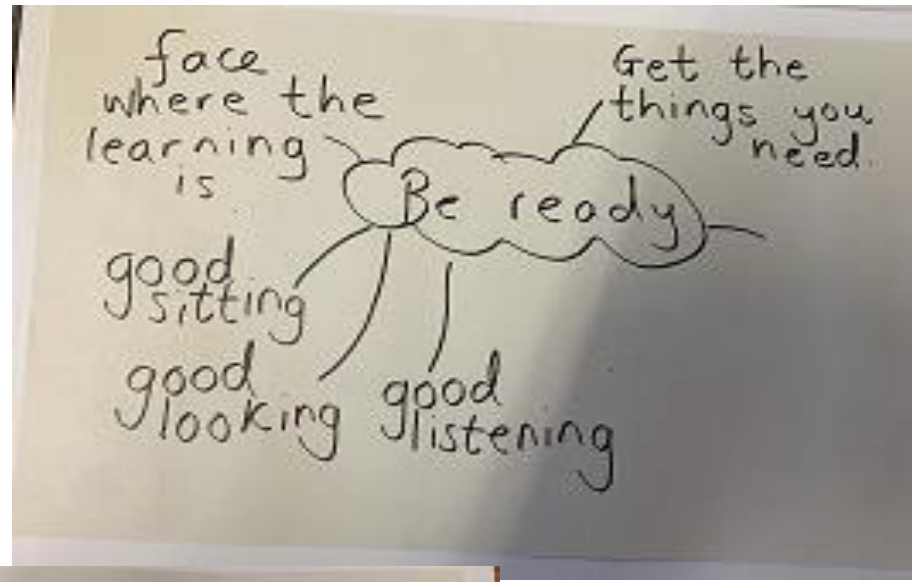 face
where the
learning
is
Get the
things you
need.
Be ready
good
sitting
good
looking
good
listening